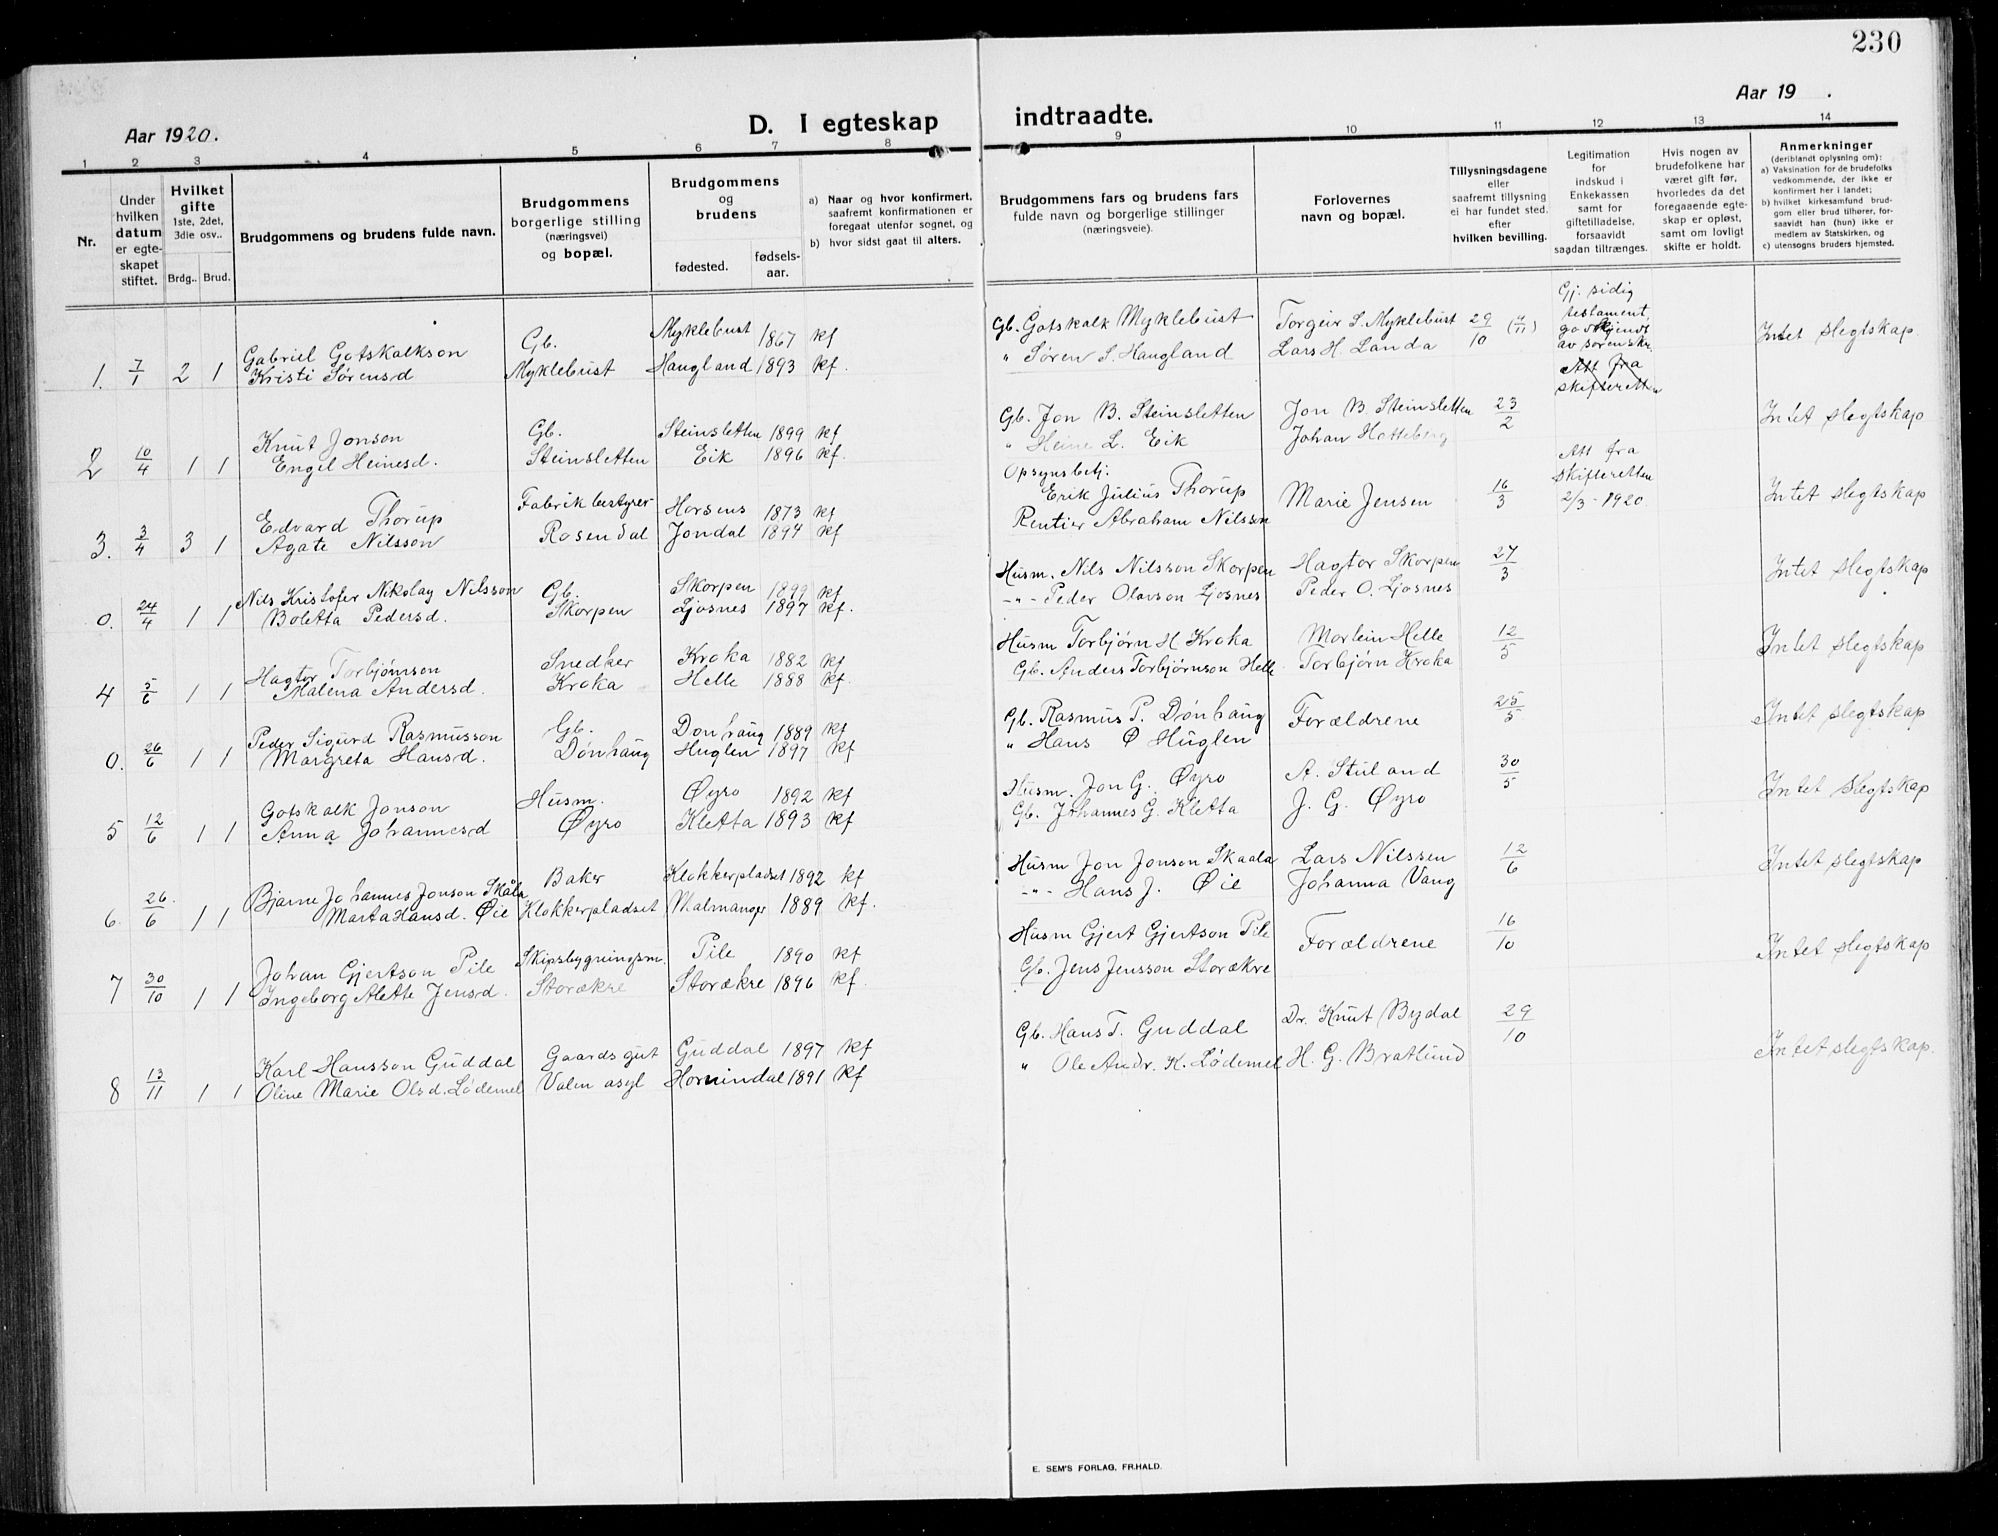 230
Aar 1920.
D. I egteskap indtraadte.
Aar 19 .
1 2 3 4 5 6 7 8 9 10 11 12 13 14
Nr.
Under hvilken datum er egteskapet stiftet.
Hvilket gifte 1ste, 2det, 3die osv..
Brdg.. Brud.
Brudgommens og brudens fulde navn.
Brudgommens borgerlige stilling (næringsvei) og bopæl.
Brudgommens og brudens
fødested. fødselsaar.
a) Naar og hvor konfirmert, saafremt konfirmationen er foregaat utenfor sognet, og
b) hvor sidst gaat til alters.
Brudgommens fars og brudens fars fulde navn og borgerlige stillinger (næringsveie).
Forlovernes navn og bopæl.
Tillysningsdagene eller saafremt tillysning ei har fundet sted. efter hvilken bevilling.
Legitimation for indskud i Enkekassen samt for giftetilladelse, forsaavidt saadan tiltrænges.
Hvis nogen av brudefolkene har været gift før, hvorledes da det foregaaende egteskap er opløst, samt om lovligt skifte er holdt.
Anmerkninger (deriblandt oplysning om):
a) Vaksination for de brudefolks vedkommende, der ikke er konfirmert her i landet;
b) hvilket kirkesamfund brudgom eller brud tilhører, forsaavidt han (hun) ikke er medlem av Statskirken, og
c) utensogns bruders hjemsted.
Gabriel Gotskalkson Gb. Myklebust 1867 kf Gb. Gotskalk Myklebust Torgeir S. Myklebust 29/10 (4/11) Gj. sidig testament, godkjendt av sorenskr. Intet slegtskap.
1. 7/1 2 1 Kristi Sørensd Myklebust Haugland 1893 kf. " Søren S. Haugland Lars H. Landa
Att fra skifteretten
Knut Jonson Gb. Steinsletten 1899 kf Gb. Jon B. Steinsletten Jon B. Steinsletten 23/2 Intet slegtskap
2 10/4 1 1 Engel Heinesd. Steinsletten Eik 1896 kf. " Heine L. Eik Johan Hatteberg
Edvard Thorup Fabrikbestyrer Horsens 1873 kf Opsynsbetj. Erik Julius Thorup Marie Jensen 16/3 Att fra skifteretten 2/3 - 1920. Intet slegtskap
3. 3/4 3 1 Agate Nilsson Rosendal Jondal 1894 kf Rentier Abraham Nilsson
Nils Kristofer Nikolay Nilsson Gb. Skorpen 1899 kf Husm. Nils Nilsson Skorpen Hagtor Skorpen 27/3 Intet slegtskap
0. 24/4 1 1 Boletta Pedersd. Skorpen Ljosnes 1897 kf. -"- Peder Olavson Ljosnes Peder O. Ljosnes
Hagtor Torbjørnson Snedker Kroka 1882 kf Husm Torbjørn H Kroka Martein Helle 12/5 Intet slegtskap
4 5/6 1 1 Malena Andersd. Kroka Helle 1888 kf. Gb. Anders Torbjørnson Helle Torbjørn Kroka
Peder Sigurd Rasmusson Gb. Dønhaug 1889 kf Gb. Rasmus P. Dønhaug Forældrene 25/5 Intet slegtskap
0. 26/6 1 1 Margreta Hansd. Dønhaug Huglen 1897 kf " Hans Ø Huglen
Gotskalk Jonson Husm. Øyro 1892 kf Husm. Jon G. Øyro A. Stuland 30/5 Intet slegtskap
5 12/6 1 1 Anna Johannesd Øyro Kletta 1893 kf Gb. Johannes G. Kletta J. G. Øyro
Bjarne Johannes Jonson Skåla Baker Klokkerpladset 1892 kf Husm Jon Jonson Skaala Lars Nilssen 12/6 Intet slegtskap
6. 26/6 1 1 Marta Hansd. Øie Klokkerpladset Malmanger 1889 kf. -"- Hans J. Øie Johanna Vang
Johan Gjertson Pile Skipsbygningsm. Pile 1890 kf Husm Gjert Gjertson Pile Forældrene 16/10 Intet slegtskap
7 30/10 1 1 Ingeborg Alette Jensd. Storækre Storækre 1896 kf. Gb. Jens Jensson Storækre
Karl Hansson Guddal Gaardsgut Guddal 1897 kf Gb. Hans T. Guddal Dr. Knut Bydal 29/10 Intet slegtskap.
8 13/11 1 1 Oline Marie Olsd. Lødemel Valen asyl Hornindal 1891 kf " Ole Andr. K. Lødemel H. G. Bratlund
E. SEM'S FORLAG, FR.HALD.